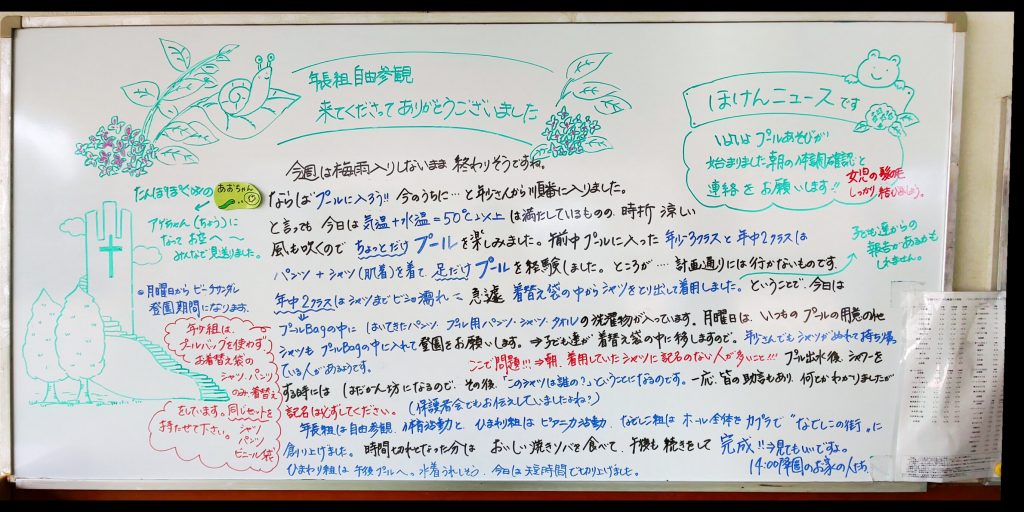 年長組 自由参観
来てくださってありがとうございました
ほけんニュースです
いよいよ プールあそびが
始まりました。朝の体調確認と
連絡をお願いします!!
女児の髪の毛
しっかり結びましょう。
今週は梅雨入りしないまま 終わりそうですね。
ならばプールに入ろう!! 今のうちに…と年少さんから順番に入りました。
と言っても 今日は 気温+水温=50℃以上 は満たしているものの 時折 涼しい
風も吹くので ちょっとだけ プール を楽しみました。午前中プールに入った 年少3クラスと年中2クラスは
パンツ+シャツ(肌着)を着て 足だけ プール を経験しました。ところが…計画通りには行かないものです。
年中2クラスはシャツまでビショ濡れに 急遽 着替え袋の中からシャツをとり出して着用しました。ということで、今日は
プールBagの中に はいてきたパンツ・プール用パンツ・シャツ・タオルの洗濯物が入っています。月曜日は、いつもの プールの用意の他
シャツも プールBagの中に入れて登園をお願いします。⇒子ども達が着替え袋の中に移しますので。年少さんでもシャツがぬれて持ち帰
ている人があるようです。
ここで問題!!!⇒朝、着用していたシャツに記名のない人が多いこと!!! プール出水後、シャワーを
する時には はだかん坊になるので、その後、“このシャツは誰の?”ということになるのです。一応、皆の助言もあり、何とかわかりましたが
記名は必ずしてください。(保護者会でもお伝えしていましたよね?)
年長組は自由参観、体育活動と、ひまわり組は ピアニカ活動、なでしこ組は ホール全体を カプラで“なでしこの街”に
創り上げました。時間切れとなった分は おいしい焼きソバを食べて、午後も続きをして 完成!!⇒見てもいいですよ。
14:00降園のお家の人たち
ひまわり組は午後プールへ。水着うれしそう。今日は短時間で切り上げました。
子ども達からの
報告があるかも
しれません。
たんぽぽぐみの
あおちゃん
アゲちゃん(ちょう)に
なって お空へ〜
みんなで見送りました。
◎月曜日から ビーチサンダル
登園期間になります。
年少組は、
プールバッグを使わず
お着替え袋の
シャツ、パンツ
のみ、着替え
をしています。同じセットを
持たせて下さい。
シャツ
パンツ
ビニール袋